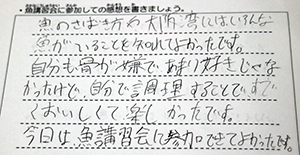 ・魚講習会に参加しての感想を書きましょう。
魚のさばき方や大阪湾にはいろんな
魚がいることを知れてよかったです。
自分も骨が嫌であまり好きじゃな
かったけど、自分で調理することで、すご
くおいしくて楽しかったです。
今日は魚講習会に参加できてよかったです。